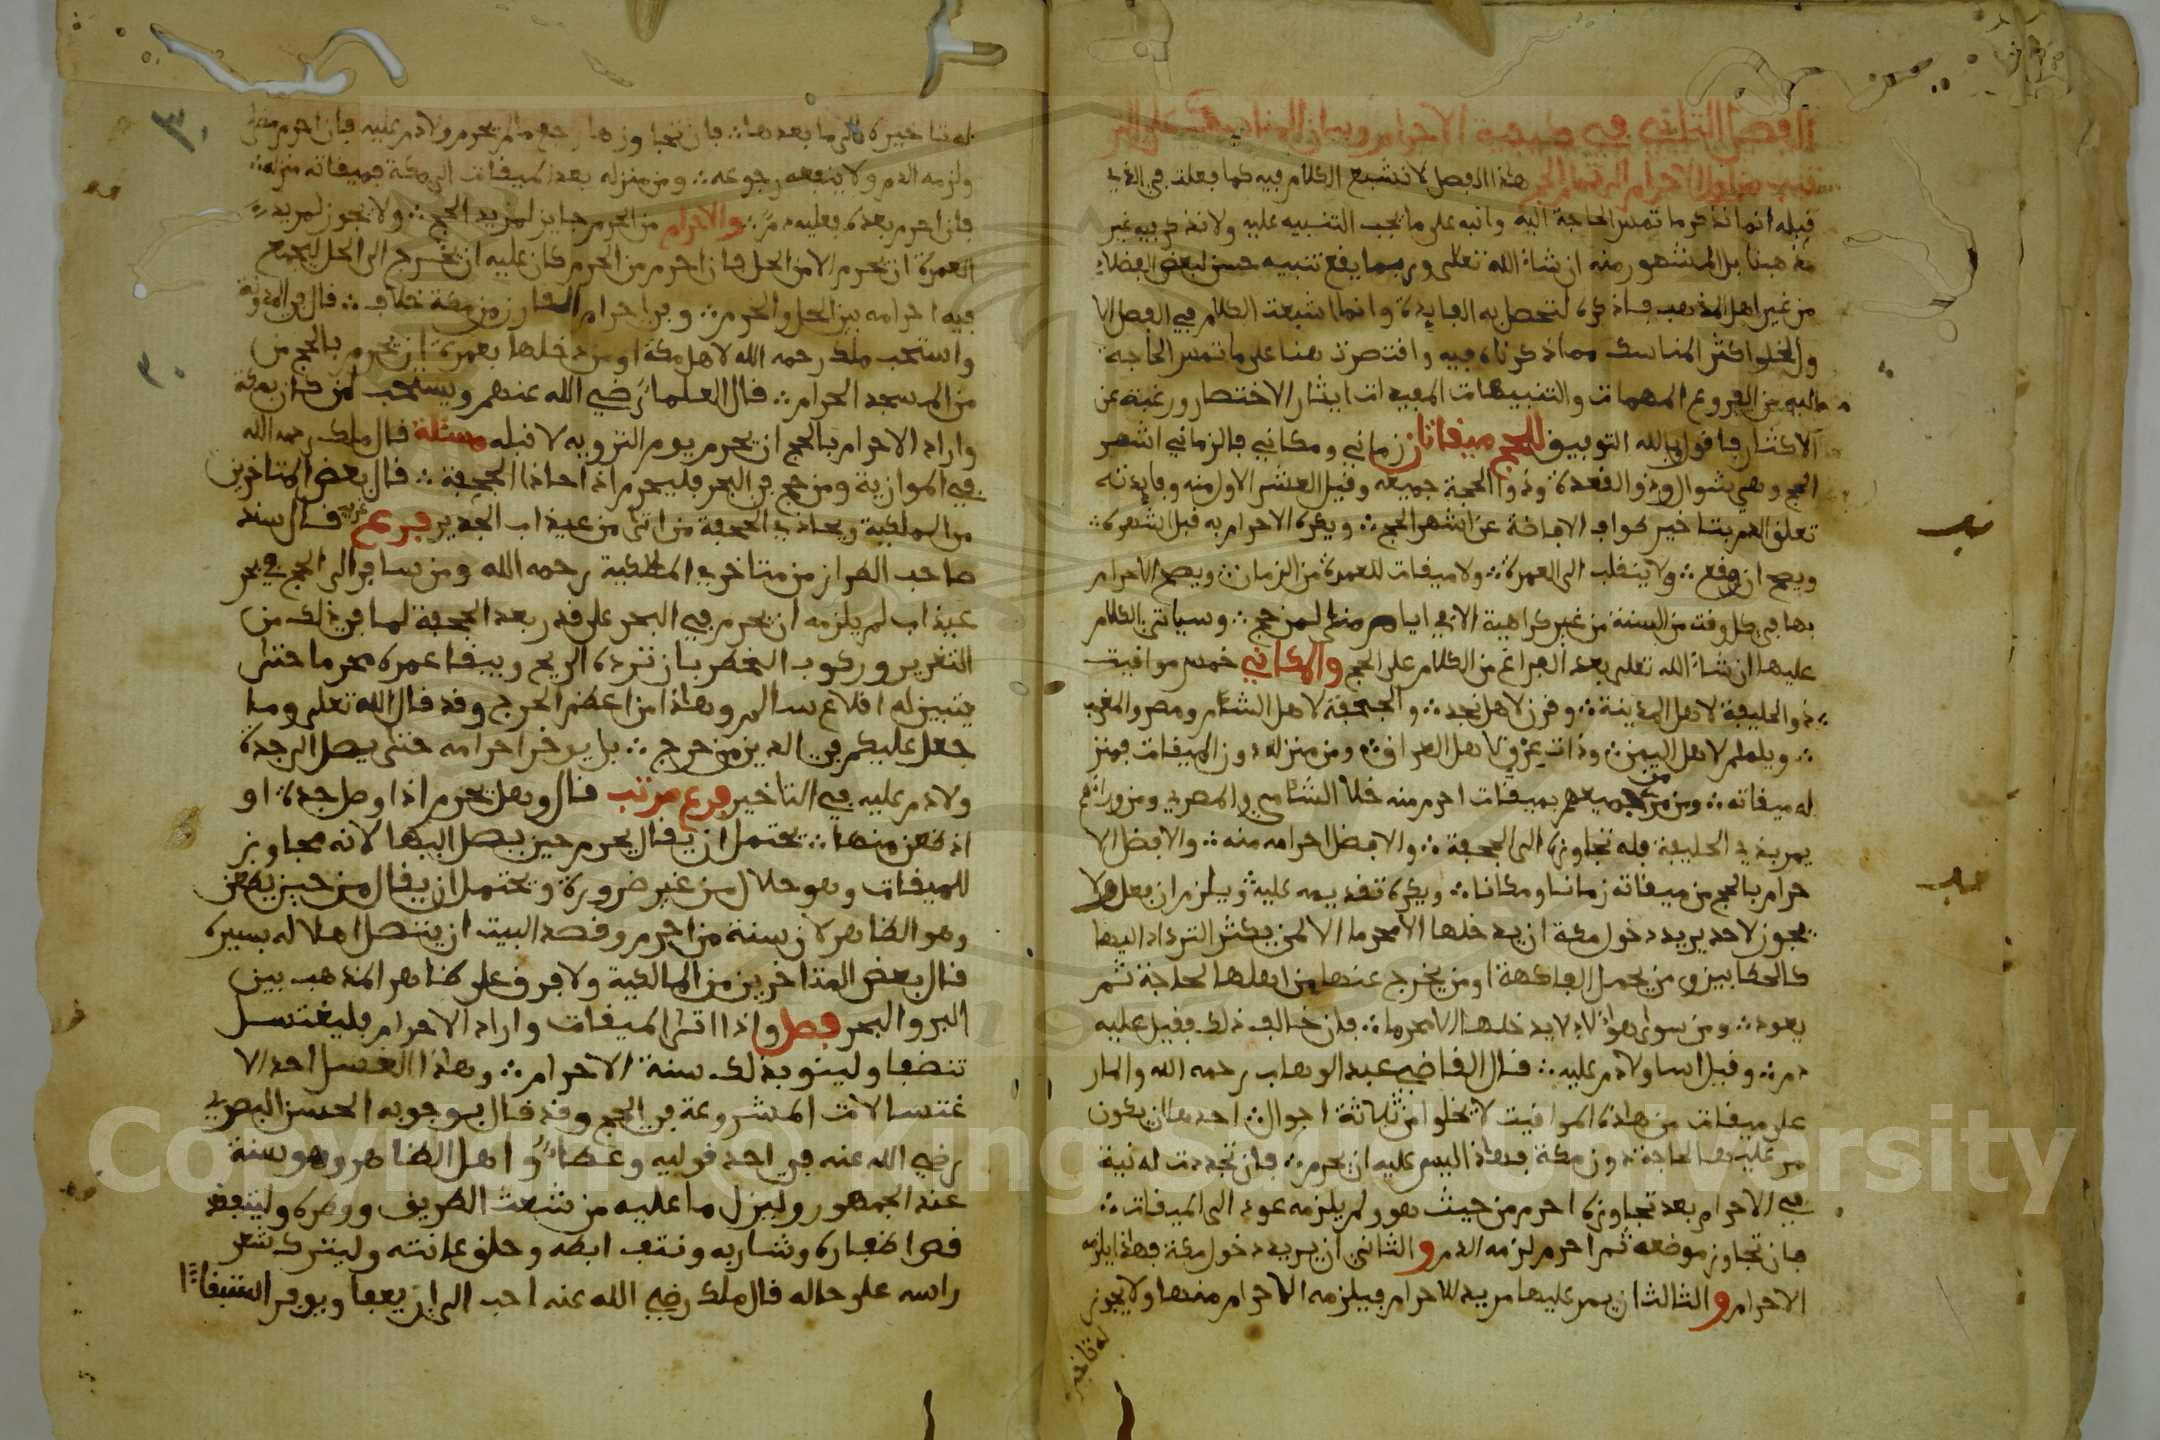 الفصل الثاني في صفة الاحرام وبيان المناسك على التر
تيب من اول الاحرام الى تمام الحج هذا الفصل لا نشبع الكلام فيه كما فعلت في الذي
قبله انما نذكر ما تمس الحاجة اليه وانبه على ما يجب التنبيه عليه ولا نذكر فيه غير
مذهبنا بل المشهور منه ان شاء الله تعلى وربما يقع تنبيه حسن لبعض الفضلاء
من غير اهل المذهب فاذكره لتحصل به الفايدة وانما اشبعت الكلام في الفصل الا
ول لخلو اكثر المناسك مما ذكرناه فيه واقتصرت هنا على ما تمس الحاجة
اليه من الفروع المهمات والتنبيهات المفيدات ايثار الاختصار ورغبة عن
الاكثار فاقول بالله التوفيق للحج ميقاتان زماني ومكاني فالزماني اشهر
الحج وهي شوال وذو القعدة وذو الحجة جميعه وقيل العشر الاول منه وفايدته
تعلق الدم بتاخير طواف الافاضة عن اشهر الحج ؞ ويكره الاحرام به قبل اشهره ؞
ويصح ان وقع ؞ ولا ينقلب الى العمرة ؞ ولا ميقات للعمرة من الزمان ؞ ويصح الاحرام
بها في كل وقت من السنة من غير كراهية الا في ايام منى لمن حج ؞ وسياتي الكلام
عليها ان شاء الله تعلى بعد الفراغ من الكلام على الحج والمكاني خمس مواقيت
؞ ذو الحليفة لاهل المدينة ؞ وقرن لاهل نجد ؞ والجحفة لاهل الشام ومصر والمغرب
؞ ويلملم لاهل اليمن ؞ وذات عرق لاهل العراق ؞ ومن منزله دون الميقات فمنز
له ميقاته ؞ ومن مر من جميعهم بميقات احرم منه خلا الشامي والمصري ومن وراءهم
يمر بذي الحليفة فله تجاوزه الى الجحفة ؞ والافضل احرامه منه ؞ والافضل الا
حرام بالحج من ميقاته زمانا ومكانا ؞ ويكره تقديمه عليه ويلزم ان فعل ولا
يجوز لاحد يريد دخول مكة ان يدخلها الا محرما الا لمن يكثر الترداد اليها
كالحطابين ومن يحمل الفاكهة او من يخرج عنها من اهلها لحاجة ثم
يعود ؞ ومن سوى هؤلاء لا يدخلها الا محرما ؞ فان خالف ذلك فقيل عليه
دم ؞ وقيل اسا ولا دم عليه ؞ قال القاضي عبد الوهاب رحمه الله والمار
على ميقات من هذه المواقيت لا يخلوا من ثلاثة احوال ؞ احدها ان يكون
مر عليه لحاجة دون مكة فهذا ليس عليه ان يحرم ؞ فان تجددت له نية
في الاحرام بعد تجاوزه احرم من حيث هو ولم يلزمه عود الى الميقات ؞
فان تجاوز موضعه ثم احرم لزمه الدم والثاني ان يريد دخول مكة فهذا يلزمه
الاحرام والثالث ان يمر عليها مريد للاحرام فيلزمه الاحرام منها ولا يجوز
له تاخير
له تاخيره الى ما بعدها ؞ فان تجاوزها رجع ما لم يحرم ولا دم عليه فان احرم مضى
ولزمه الدم ولا ينفعه رجوعه ؞ ومن منزله بعد الميقات الى مكة فميقاته منزله ؞
فان احرم بعده فعليه دم ؞ والاحرام من الحرم جايز لمريد الحج ؞ ولا يجوز لمريد
العمرة ان يحرم الا من الحل فان احرم من الحرم كان عليه ان يخرج الى الحل ليجمع
فيه احرامه بين الحل والحرم ؞ وفي احرام القارن من مكة خلاف ؞ قال في المدونة
واستحب ملك رحمه الله لاهل مكة او من دخلها بعمرة ان يحرم بالحج من
من المسجد الحرام ؞ قال العلماء رضي الله عنهم ويستحب لمن كان بمكة
واراد الاحرام بالحج ان يحرم يوم التروية لا قبله مسئلة قال ملك رحمه الله
في الموازية ومن حج في البحر فليحرم اذا حاذا الجحفة ؞ قال بعض المتاخرين
من المالكية ويحاذي الجحفة من اتى من عيذاب الجدير فرع غريب قال سند
صاحب الطراز من متاخري المالكية رحمه الله ومن سافر الى الحج في بحر
عيذاب لم يلزمه ان يحرم في البحر على قدر بعد الجحفة لما في ذلك من
التغرير وركوب الخطر بان ترده الريح ويبقا عمره محرما حتى
يتبين له اقلاع سالم وهذا من اعظم الحرج وقد قال الله تعلى وما
جعل عليكم في الدين من حرج ؞ بل يوخر احرامه حتى يصل الى جدة
ولا دم عليه في التاخير فرع مرتب قال وهل يحرم اذا وصل جدة او
اذ ظعن منها ؞ يحتمل ان يقال يحرم حين يصل اليها لانه مجاوز
للميقات وهو حلال من غير ضرورة ويحتمل ان يقال من حين يظعن
وهو الظاهر لان سنة من احرم وقصد البيت ان يتصل اهلاله بسيره
قال بعض المتاخرين من المالكية ولا فرق على ظاهر المذهب بين
البر والبحر فصل واذا اتى الميقات واراد الاحرام فليغتسل
تنضفا ولينو بذلك سنة الاحرام ؞ وهذا الغسل احد الا
غتسالات المشروعة في الحج وقد قال بوجوبه الحسن البصري
رضي الله عنه في احد قوليه وعطاء واهل الظاهر وهو سنة
عند الجمهور وليزل ما عليه من شعث الطريق ووضره ولينقض
قص اظفاره وشاربه ونتف ابطه وحلق عانته وليترك شعر
راسه على حاله قال ملك رضي الله عنه احب الى ان يعفا ويوفر استبقاء
Copyright © King Saud University